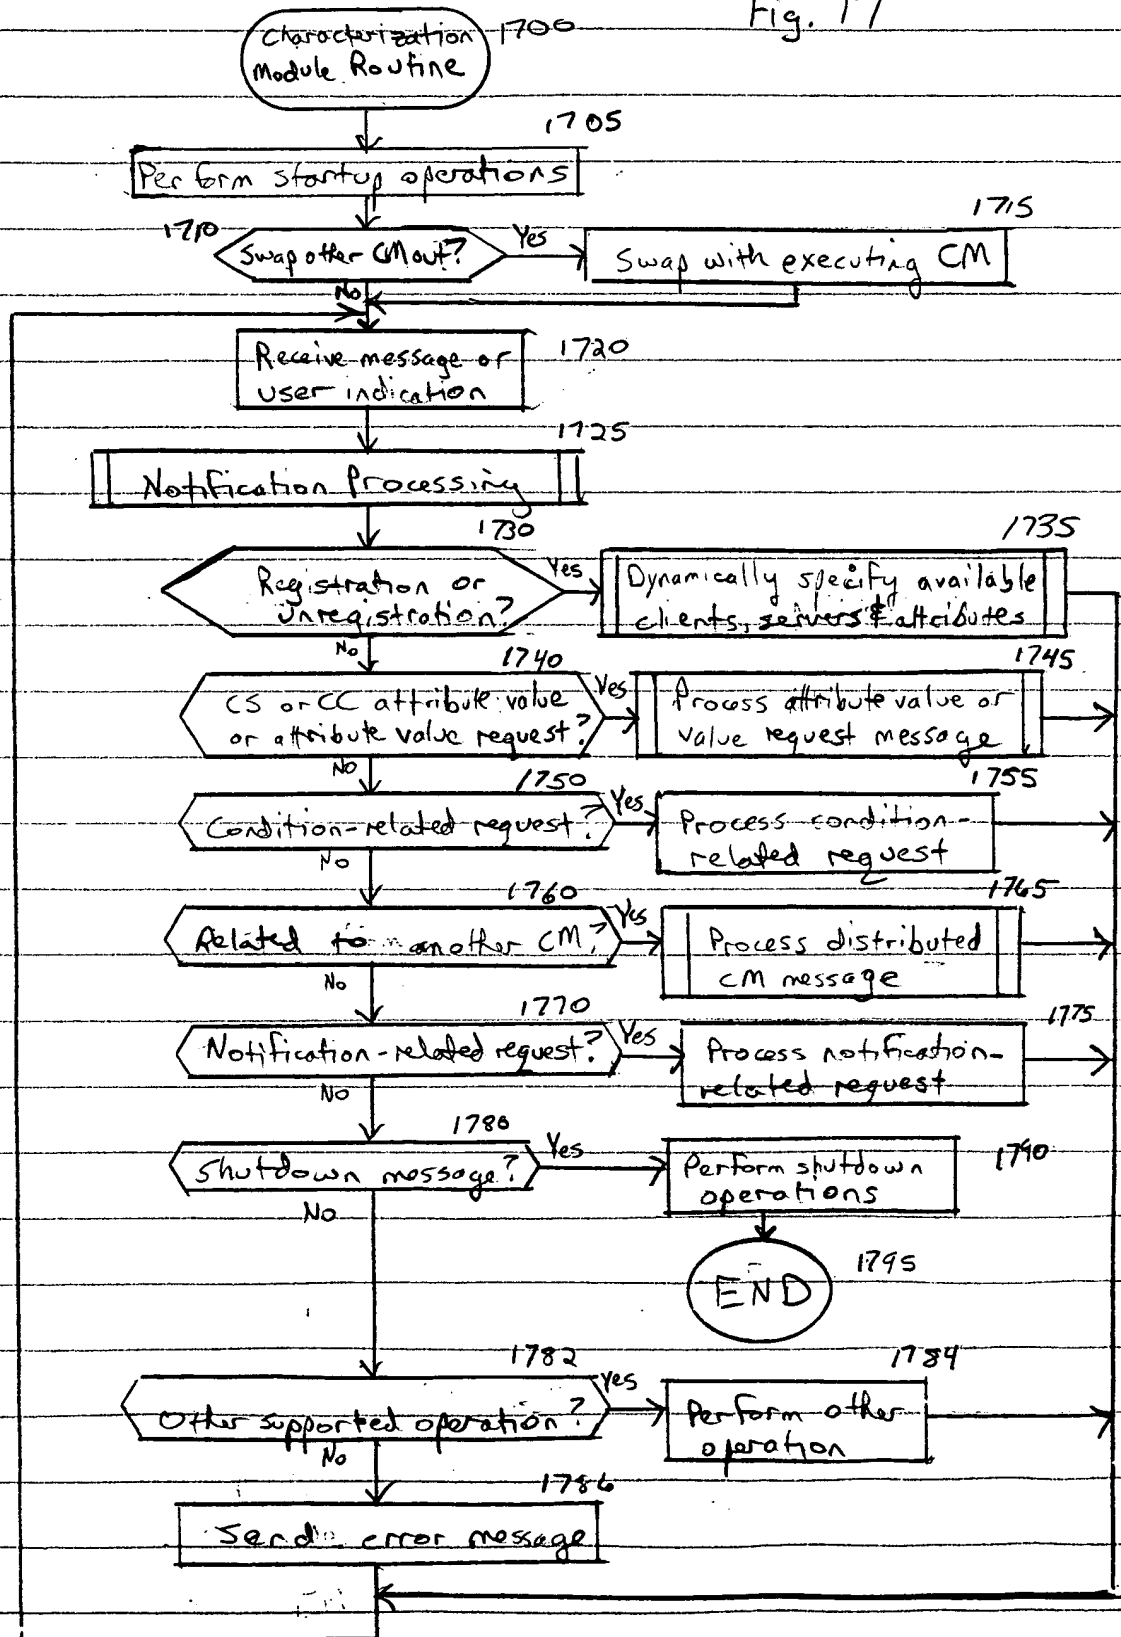 Fig. 17
Characterization 1700
Module Routine
1705
Perform startup operations
1710
Swap other CM out?
Yes
1715
Swap with executing CM
No
Receive message or
user indication
1720
1725
Notification Processing
1730
Registration or
Unregistration?
Yes
1735
Dynamically specify available
clients, servers & attributes
No
1740
CS or CC attribute value
or attribute value request?
Yes
1745
Process attribute value or
value request message
No
1750
Condition-related request?
Yes
1755
Process condition-
related request
No
1760
Related to another CM?
Yes
1765
Process distributed
CM message
No
1770
Notification-related request?
Yes
1775
Process notification-
related request
No
1780
Shutdown message?
Yes
Perform shutdown
operations
1790
No
END
1795
1782
Other supported operation?
Yes
1784
Perform other
operation
No
1786
Send error message